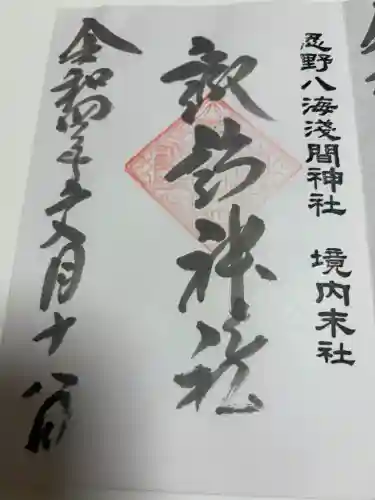 忍野八海淺間神社　境内末社
諏訪神社
令和四年文月十八日